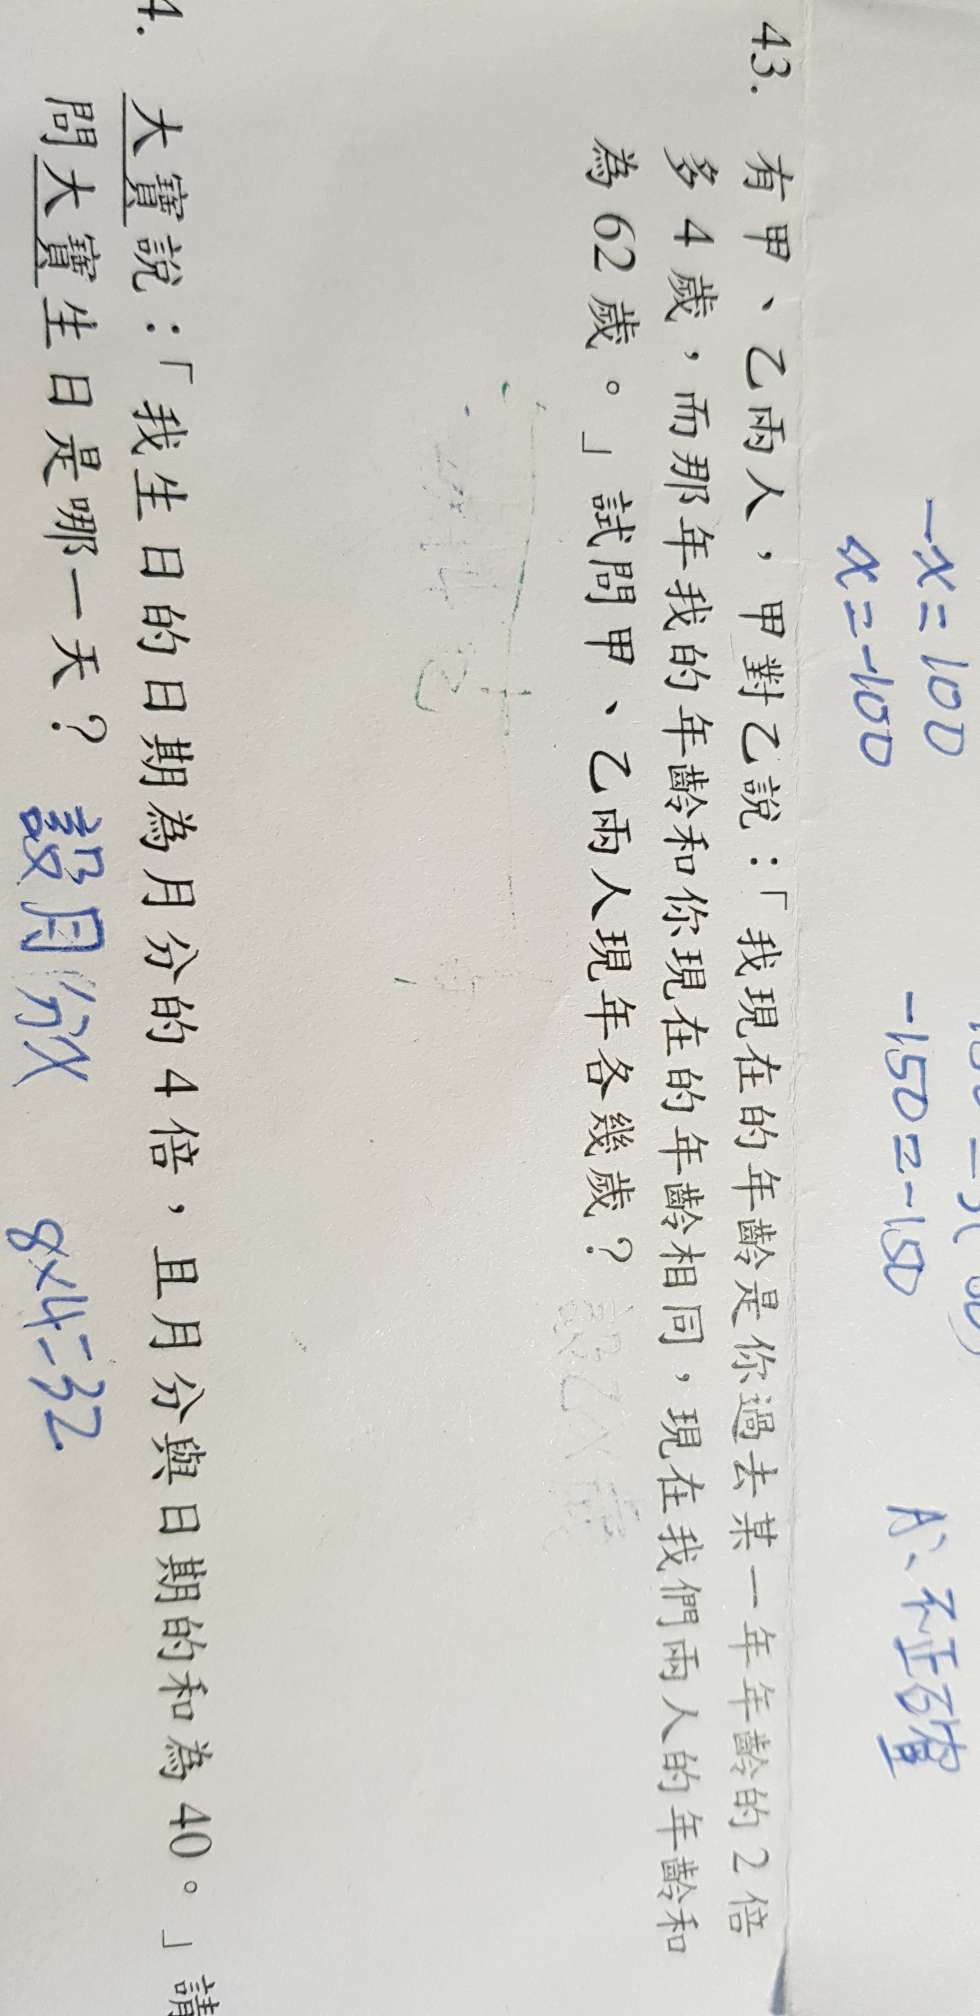 -x=100
x=-100
-150=-150
A:不正確
43. 有甲、乙兩人，甲對乙說：「我現在的年齡是你過去某一年年齡的2倍
多4歲，而那年我的年齡和你現在的年齡相同，現在我們兩人的年齡和
為62歲。」試問甲、乙兩人現年各幾歲？
4. 大寶說：「我生日的日期為月分的4倍，且月分與日期的和為40。」請
問大寶生日是哪一天？ 設月分x 8×4=32